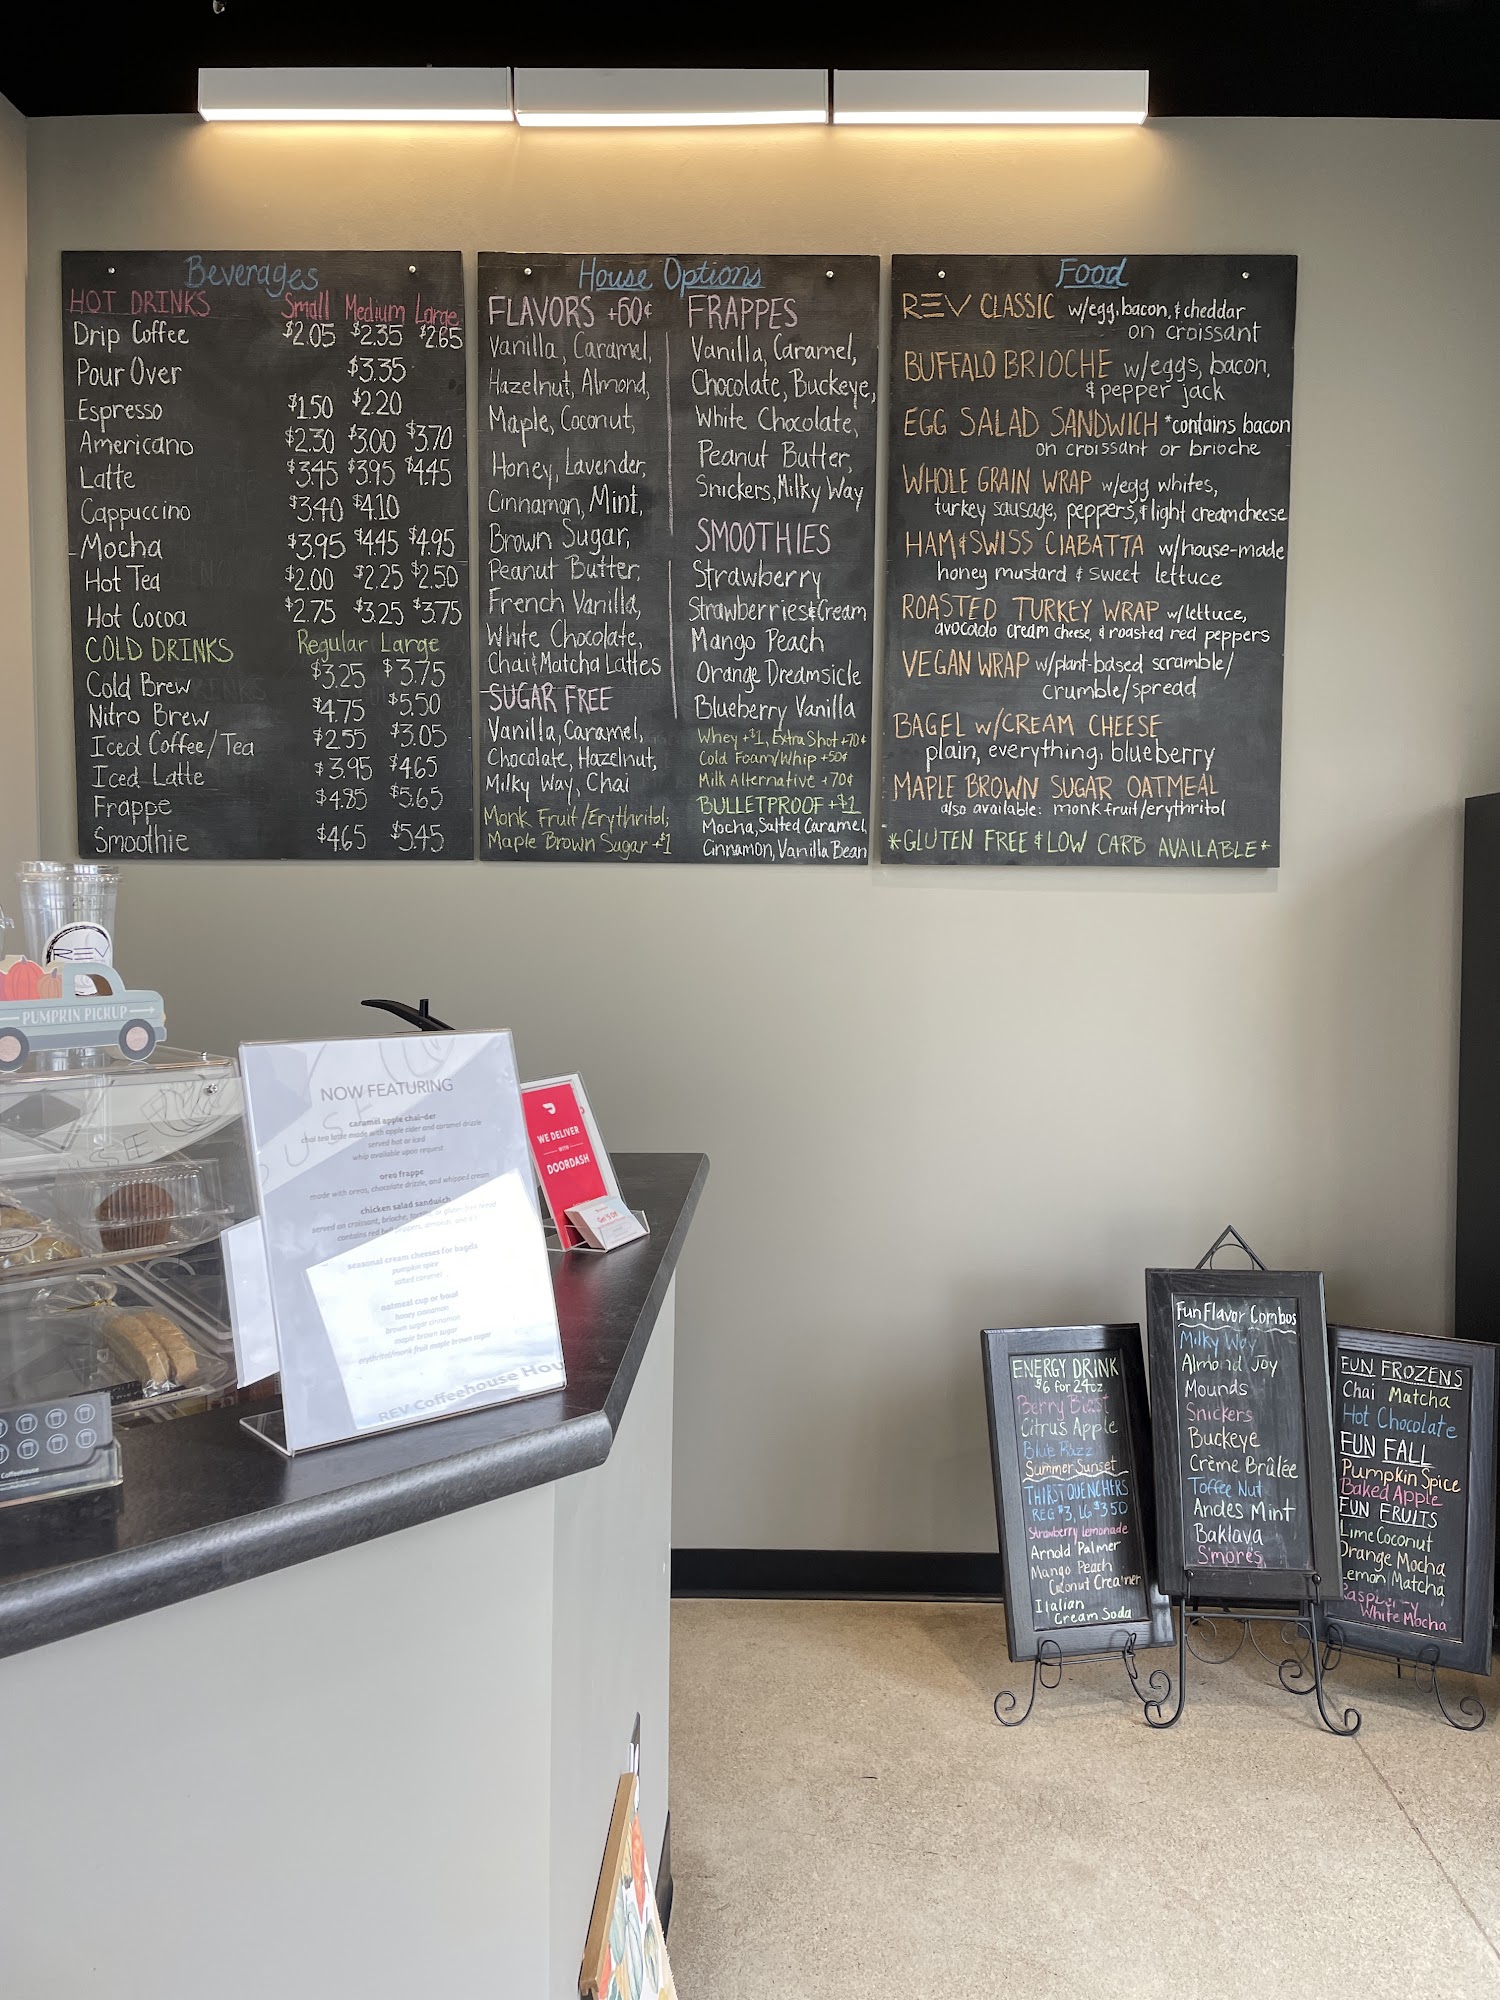 Beverages
HOT DRINKS Small Medium Large
Drip Coffee $2.05 $2.35 $2.65
Pour Over $3.35
Espresso $1.50 $2.20
Americano $2.30 $3.00 $3.70
Latte $3.45 $3.95 $4.45
Cappuccino $3.40 $4.10
Mocha $3.95 $4.45 $4.95
Hot Tea $2.00 $2.25 $2.50
Hot Cocoa $2.75 $3.25 $3.75
COLD DRINKS Regular Large
Cold Brew $3.25 $3.75
Nitro Brew $4.75 $5.50
Iced Coffee/Tea $2.55 $3.05
Iced Latte $3.95 $4.65
Frappe $4.85 $5.65
Smoothie $4.65 $5.45
House Options
FLAVORS +60¢
Vanilla, Caramel,
Hazelnut, Almond,
Maple, Coconut,
Honey, Lavender,
Cinnamon, Mint,
Brown Sugar,
Peanut Butter,
French Vanilla,
White Chocolate,
Chai & Matcha Lattes
SUGAR FREE
Vanilla, Caramel,
Chocolate, Hazelnut,
Milky Way, Chai
Monk Fruit/Erythritol;
Maple Brown Sugar +$1
FRAPPES
Vanilla, Caramel,
Chocolate, Buckeye,
White Chocolate,
Peanut Butter,
Snickers, Milky Way
SMOOTHIES
Strawberry
Strawberries & Cream
Mango Peach
Orange Dreamsicle
Blueberry Vanilla
Whey +$1, Extra Shot +70¢
Cold Foam/Whip +50¢
Milk Alternative +70¢
BULLETPROOF +$1
Mocha, Salted Caramel,
Cinnamon, Vanilla Bean
Food
REV CLASSIC w/egg, bacon, & cheddar
on croissant
BUFFALO BRIOCHE w/eggs, bacon,
& pepper jack
EGG SALAD SANDWICH *contains bacon
on croissant or brioche
WHOLE GRAIN WRAP w/egg whites,
turkey sausage, peppers, & light cream cheese
HAM & SWISS CIABATTA w/house-made
honey mustard & sweet lettuce
ROASTED TURKEY WRAP w/lettuce,
avocado cream cheese, & roasted red peppers
VEGAN WRAP w/plant-based scramble/
crumble/spread
BAGEL w/CREAM CHEESE
plain, everything, blueberry
MAPLE BROWN SUGAR OATMEAL
also available: monk fruit/erythritol
*GLUTEN FREE & LOW CARB AVAILABLE*
REV
PUMPKIN PICKUP
NOW FEATURING
caramel apple chai-der
chai tea latte made with apple cider and caramel drizzle
served hot or iced
whip available upon request
oreo frappe
made with oreos, chocolate drizzle, and whipped cream
chicken salad sandwich
served on croissant, brioche,
contains red
seasonal cream cheeses for bagels
pumpkin spice
salted caramel
oatmeal cup or bowl
honey cinnamon
brown sugar cinnamon
maple brown sugar
erythritol/monk fruit maple brown sugar
REV Coffeehouse Hou
WE DELIVER
WITH
DOORDASH
Coffeehouse
ENERGY DRINK
$6 for 24oz
Berry Blast
Citrus Apple
Blue Razz
Summer Sunset
THIRST QUENCHERS
REG $3, LG $3.50
Strawberry Lemonade
Arnold Palmer
Mango Peach
Coconut Creamer
Italian
Cream Soda
Fun Flavor Combos
Milky Way
Almond Joy
Mounds
Snickers
Buckeye
Crème Brûlée
Toffee Nut
Andes Mint
Baklava
S'mores
FUN FROZENS
Chai Matcha
Hot Chocolate
FUN FALL
Pumpkin Spice
Baked Apple
FUN FRUITS
Lime Coconut
Orange Mocha
Lemon Matcha
Raspberry
White Mocha